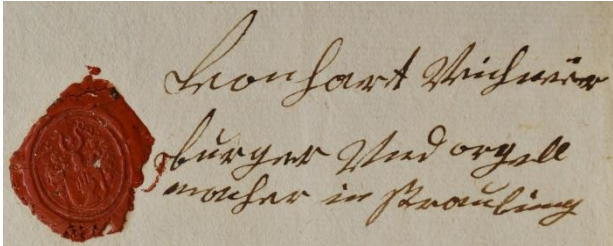 Leonhart
burger Vnd orgell
macher in Straubing